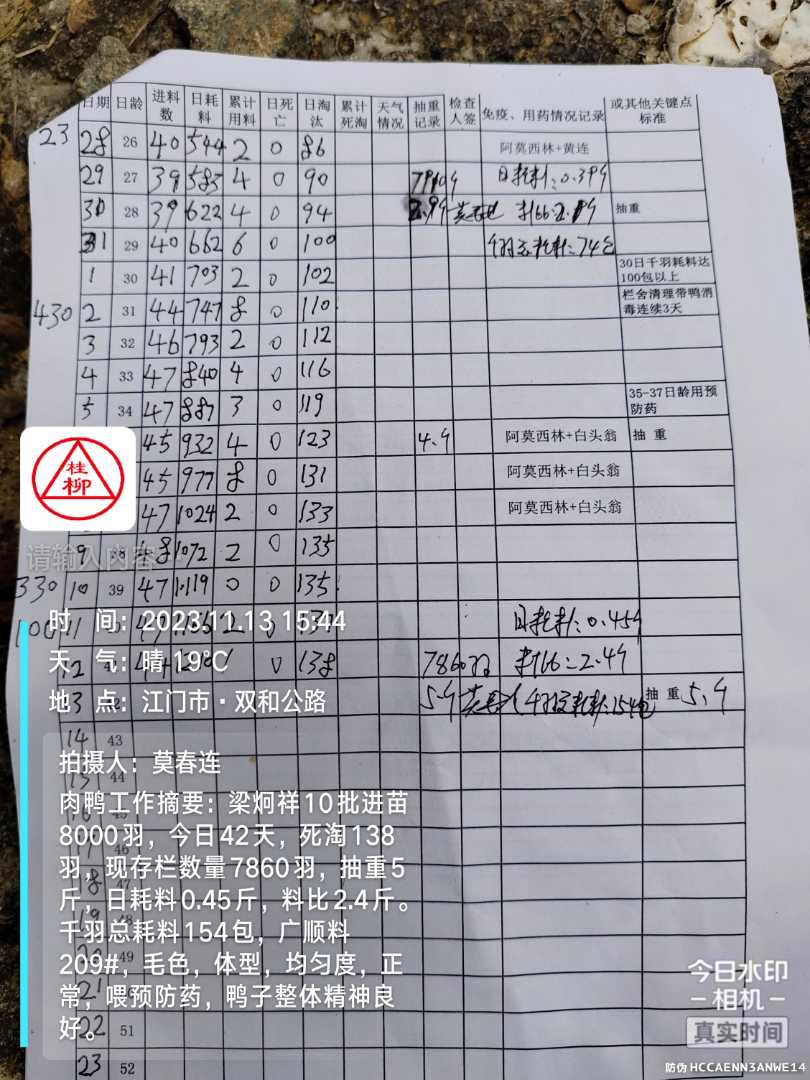 日期 日龄 进料数 日耗料 累计用料 日死亡 日淘汰 累计死淘 天气情况 抽重记录 检查人签 免疫、用药情况记录 或其他关键点标准
23 28 26 40 544 2 0 86 阿莫西林+黄连
29 27 39 583 4 0 90 日耗料:0.39斤
30 28 39 622 4 0 94 2.9斤 抽重
31 29 40 662 6 0 100 千羽总耗料:74包
1 30 41 703 2 0 102 30日千羽耗料达100包以上
430 2 31 44 747 8 0 110 栏舍清理带鸭消毒连续3天
3 32 46 793 2 0 112
4 33 47 840 4 0 116
5 34 47 887 3 0 119 35-37日龄用预防药
45 932 4 0 123 4.斤 阿莫西林+白头翁 抽 重
45 977 8 0 131 阿莫西林+白头翁
47 1024 2 0 133 阿莫西林+白头翁
9 48 1072 2 0 135
330 10 39 47 1119 0 0 135
100 11 2 日耗料:0.45斤
12 0 138 7860羽 料比=2.4斤
3 5斤 千羽总耗料:154包 抽 重 5斤
14 43
44
47
19 48
51
23 52
桂柳
请输入内容
时 间:2023.11.13 15:44
天 气:晴 19℃
地 点:江门市·双和公路
拍摄人:莫春连
肉鸭工作摘要:梁炯祥10批进苗
8000羽,今日42天,死淘138
羽,现存栏数量7860羽,抽重5
斤,日耗料0.45斤,料比2.4斤。
千羽总耗料154包,广顺料
209#,毛色,体型,均匀度,正
常,喂预防药,鸭子整体精神良
好。
今日水印
相机
真实时间
防伪 HCCAENN3ANWE14